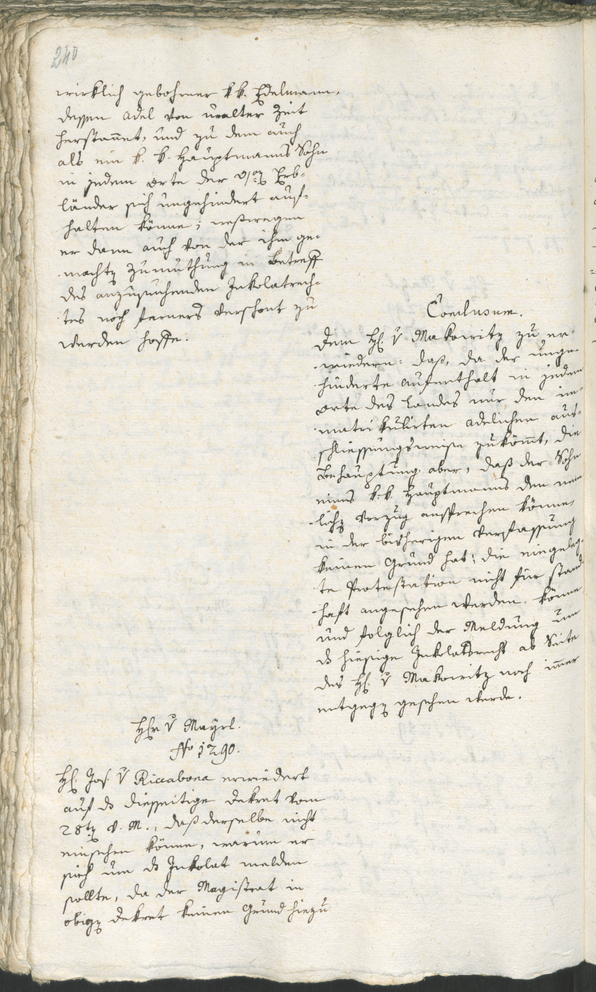 240
wirklich gebohrner k. k. Edelmann,
dessen Adel von uralter Zeit
herstammet, und zu dem auch
als ein k. k. Hauptmanns Sohn
in jedem Orte der Erb-
länder sich ungehindert auf-
halten könne;
er dann auch von der ihm ge-
machten Zumuthung in Betreff
des anzusuchenden Inkolatrech-
tes noch ferners verschont zu
werden hoffe.
Conclusum.
Dem H. v Makowitz zu er-
wiedern: daß, da der unge-
hinderte Aufenthalt in jedem
Orte des Landes nur den im-
matrikulirten adelichen aus-
schliessungsweise zukömmt, die
Behauptung aber, daß der Sohn
eines k. k. Hauptmanns den nem-
lichen Vorzug ansprechen könne,
in der bisherigen Verfassung
keinen Grund hat; die eingeleg-
te Protestation nicht für stand-
haft angesehen werden könne,
und folglich der Meldung um
ds hiesige Inkolatsrecht ab Seite
des H. v Makowitz noch immer
entgegen gesehen werde.
Hr v Mayrl.
No 1290.
H. Jos. v Riccabona erwiedert
auf ds diesseitige Dekret vom
28ten v. M., daß derselbe nicht
einsehen könne, warum er
sich um ds Inkolat melden
sollte, da der Magistrat in
obigen Dekret keinen Grund hiezu